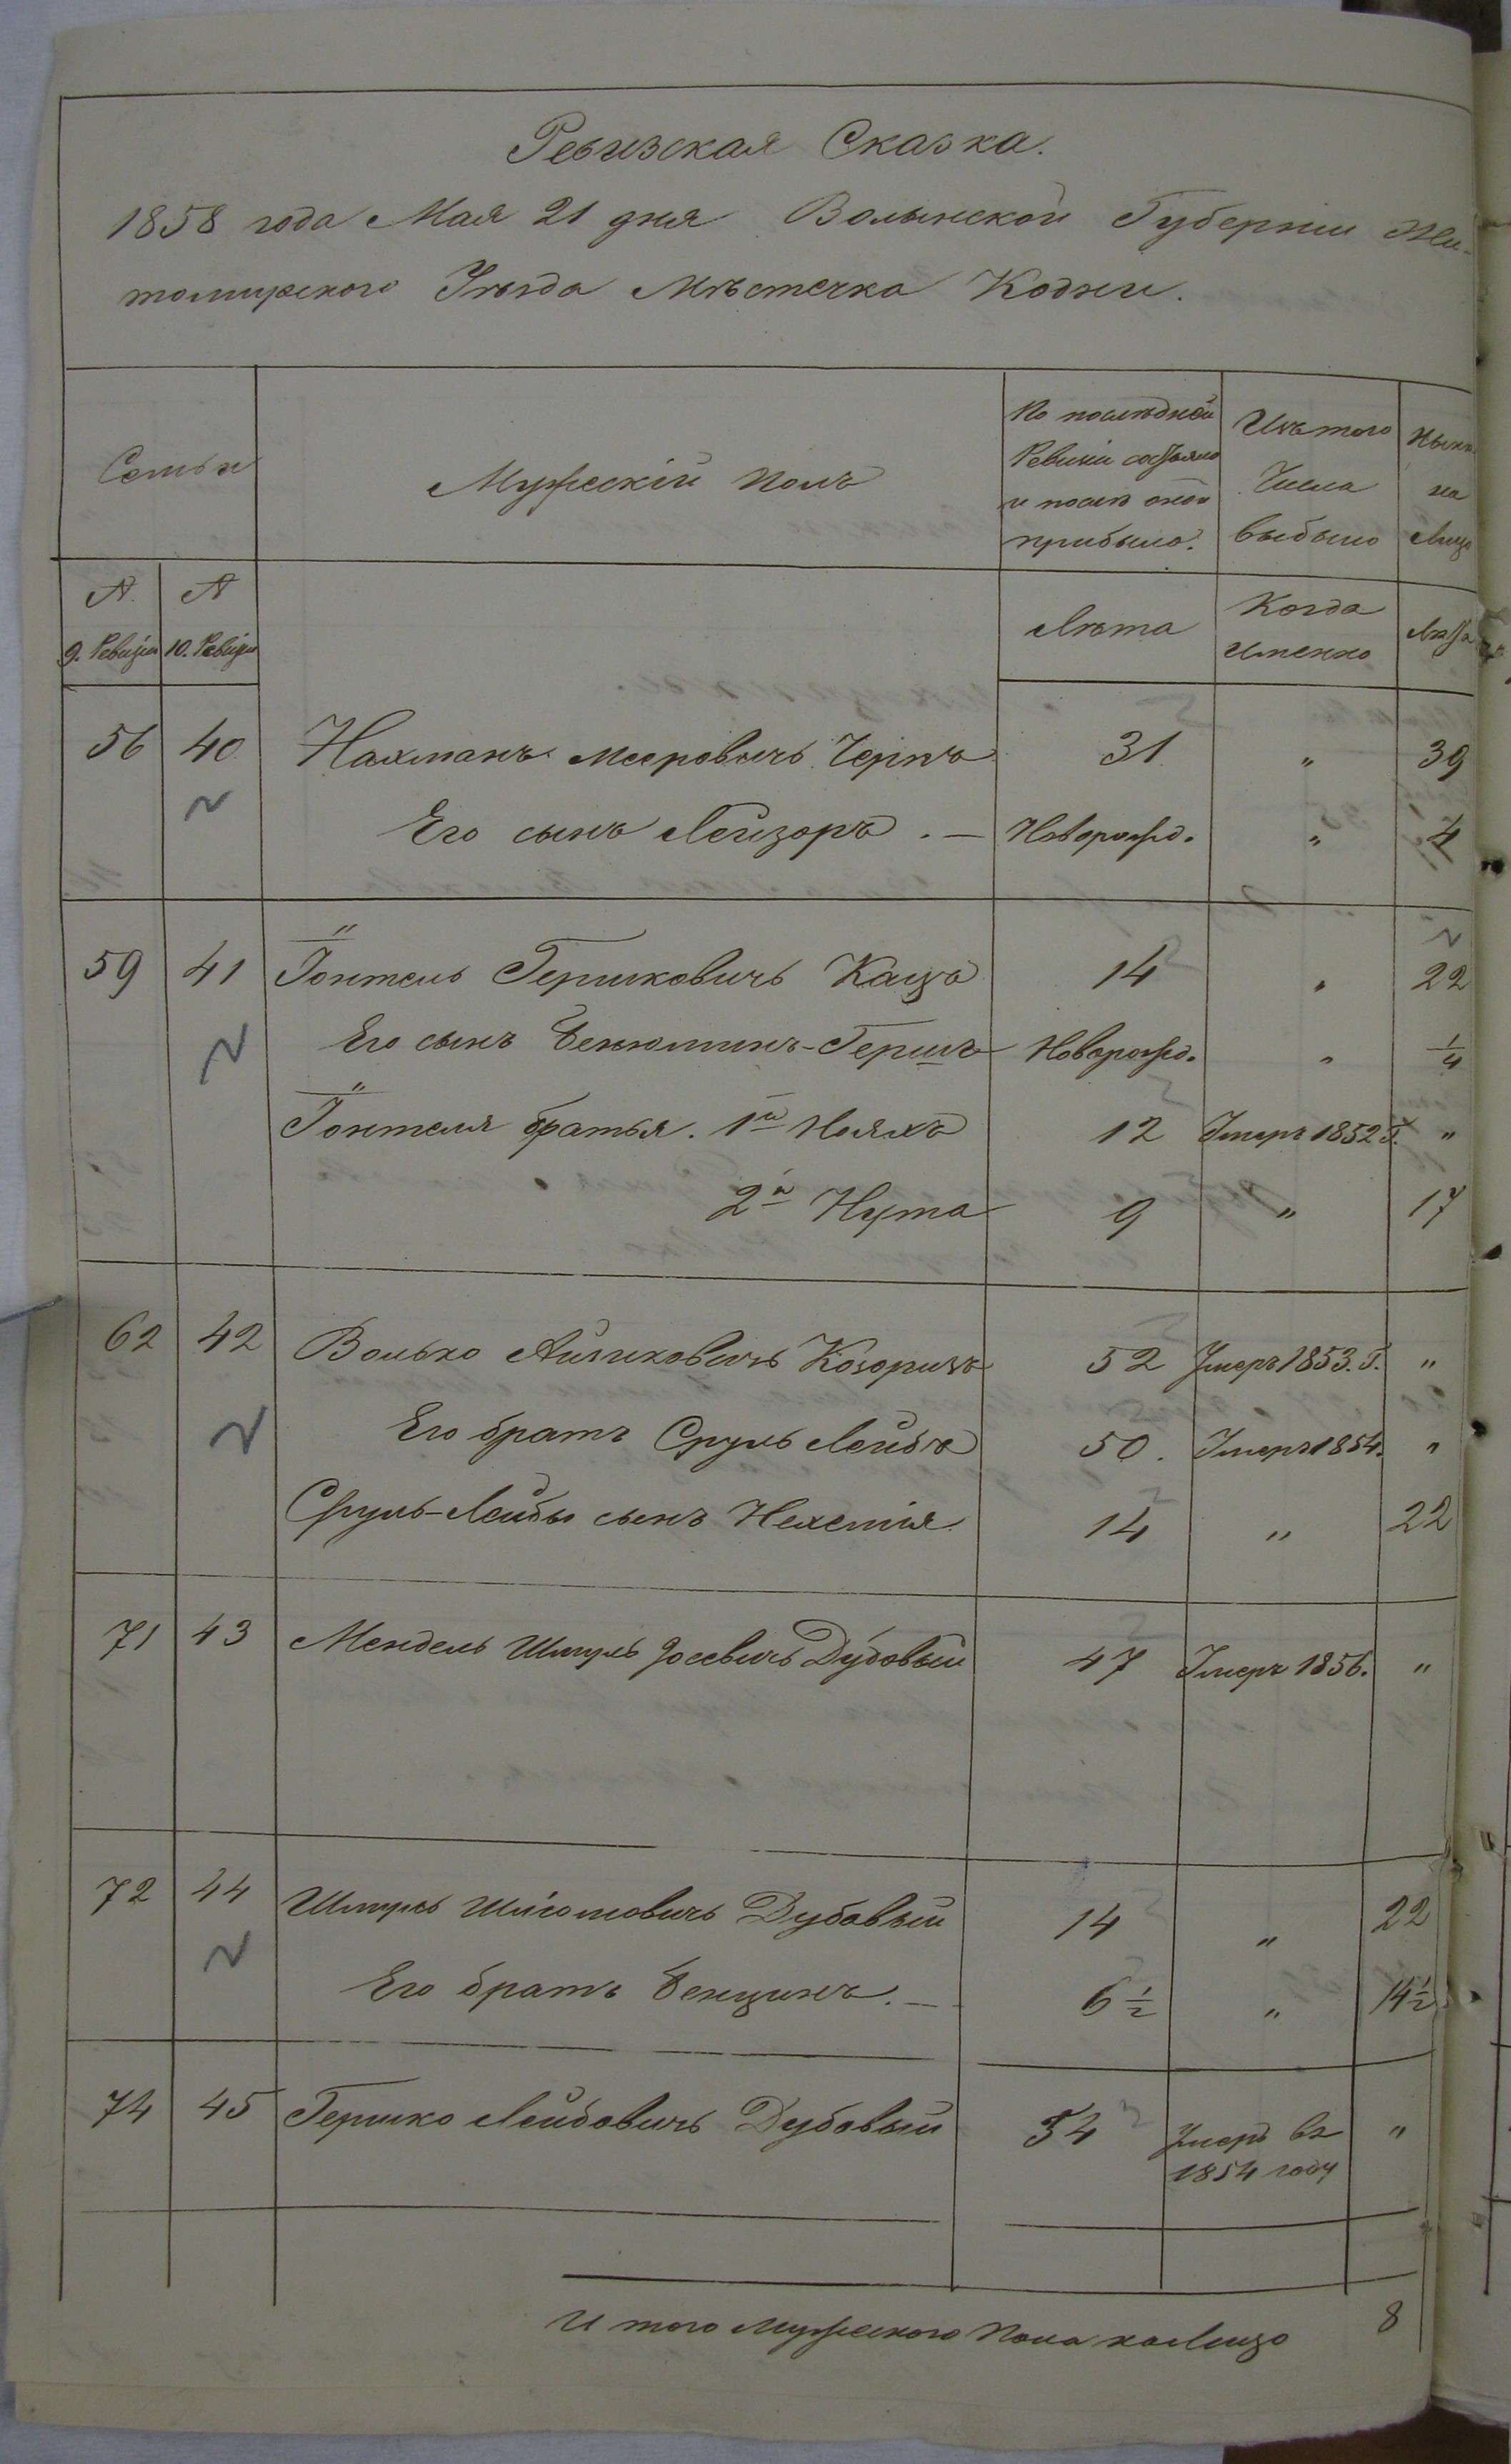 Ревизская Сказка.
1858 года Мая 21 дня Волынской Губерніи Жи-
томирского Уѣзда Мѣстечка Кодни.
Семьи
Мужескій полъ
По послѣдней Ревизіи состояло и послѣ оной прибыло.
Изъ того Числа выбыло
Нынѣ на Лицо
№ 9. Ревизіи
№ 10. Ревизіи
Лѣта
Когда Именно
Лѣта
56 40 Нахманъ Мееровичъ Чернъ 31 " 39
Его сынъ Лейзоръ . — Новорожд. " 4
59 41 Іонтель Гершковичъ Кацъ 14 " 22
Его сынъ Бенюминъ-Гершъ Новорожд. " 1/4
Іонтеля братья. 1й Нояхъ 12 Умеръ 1852 Г. "
2й Нута 9 " 17
62 42 Волько Айзиковичъ Козоризъ 52 Умеръ 1853. Г. "
Его братъ Сруль Лейба 50. Умеръ 1854. "
Сруль-Лейбы сынъ Нехемія 14 " 22
71 43 Мендель Шмуль Іосевичъ Дубовый 47 Умеръ 1856. "
72 44 Шмуль Шліомовичъ Дубовый 14 " 22
Его братъ Бенцинъ. — 6 1/2 " 14 1/2
74 45 Гершко Лейбовичъ Дубовый 54 Умеръ въ 1854 году "
И того Мужеского Пола на Лицо 8